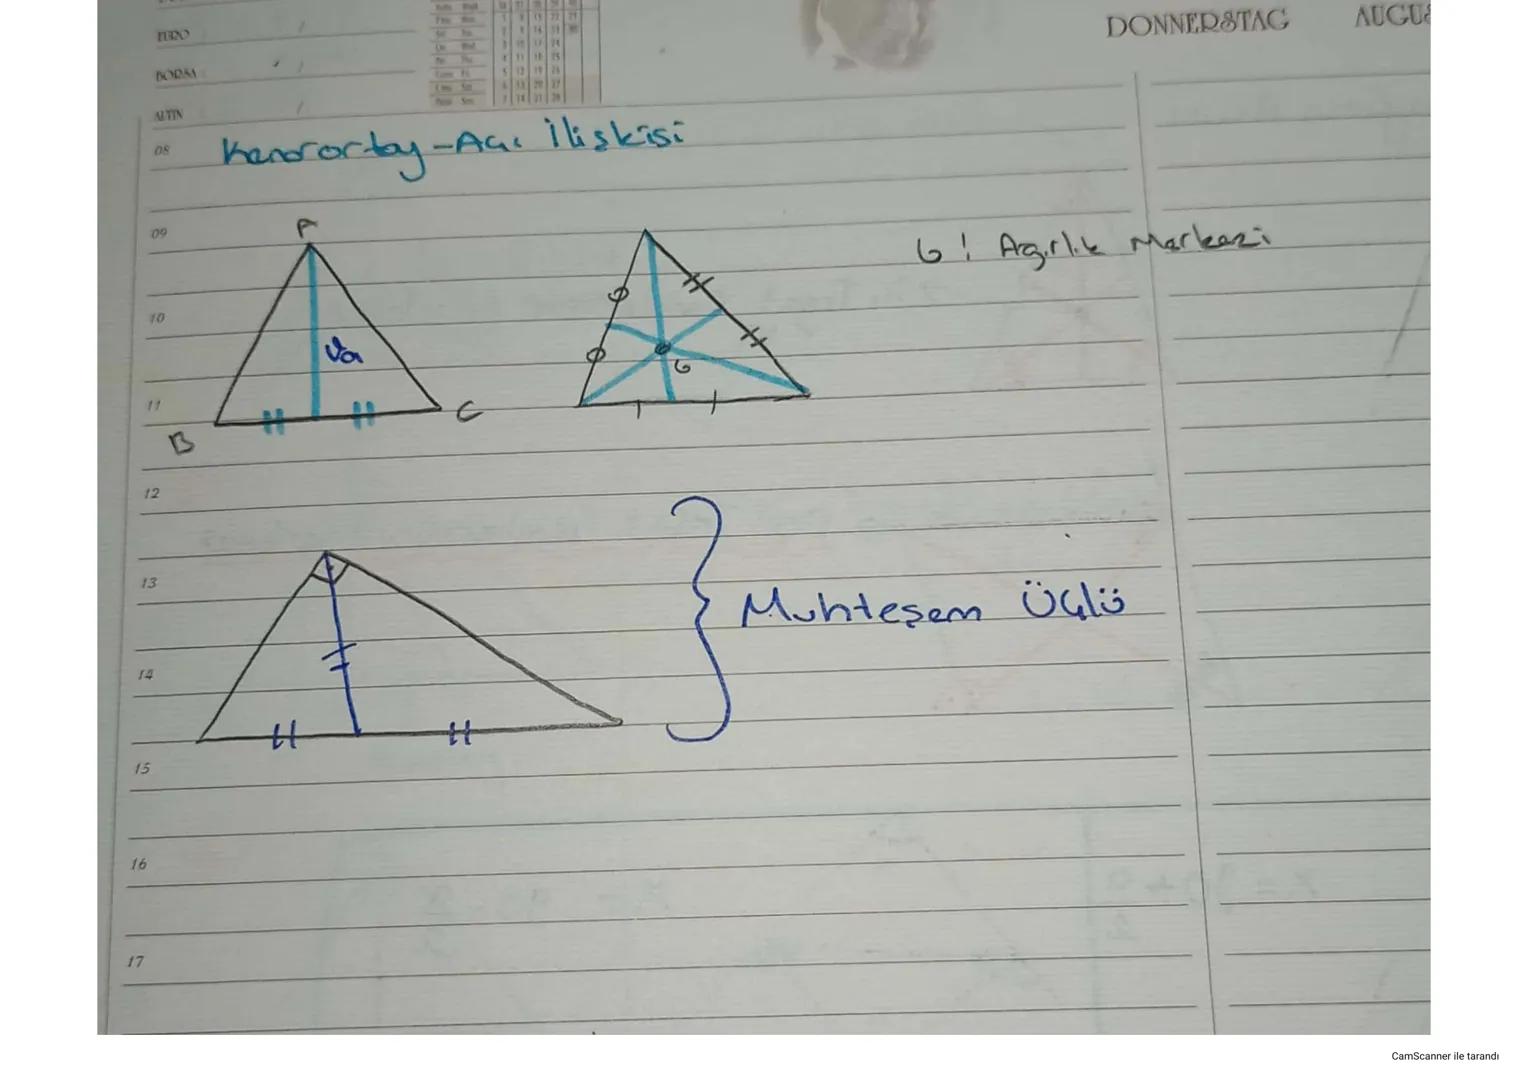 DONNERSTAG
EURO
BORSA
ALTIN
08
Kenarortay-Açı İlişkisi
09
A
G: Ağırlık Merkezi
10
Va
G
11
B
C
12
13
Muhteşem Üçlü
14
15
16
17
CamScanner ile tarandı